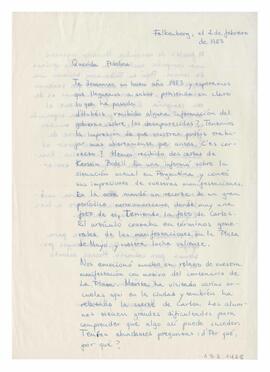 Falkenberg, el 2 de febrero
de 1983
Querida
Te deseamos un buen año 1983 y esperamos
que lleguemos a saber poniendo en claro
lo que ha pasado.
¿Habéis recibido alguna información del
gobierno sobre los desaparecidos? Tenemos
la impresión de que vosotros podéis traba-
jar más abiertamente que antes. ¿Es co-
rrecto? Hemos recibido dos cartas de
Kerstin que informa sobre la
situación actual en Argentina y contó
sus impresiones de vuestras manifestaciones.
En la carta mandó un recorte de un gran
periódico norteamericano donde hay una
foto de ti, teniendo la foto de Carlos.
El artículo cuenta en términos gene-
rales de las manifestaciones en la Plaza
de Mayo y vuestra lucha valiente.
Nos emocionó mucho en relato de vuestra
manifestación con motivo del centenario de
La Plata. ha visitado varias es-
cuelas aquí en la ciudad y también ha
relatado la suerte de Carlos. Los alum-
nos tienen grandes dificultades para
comprender que algo así puede suceder.
Tenían muchas preguntas: ¿Por qué,
por qué?